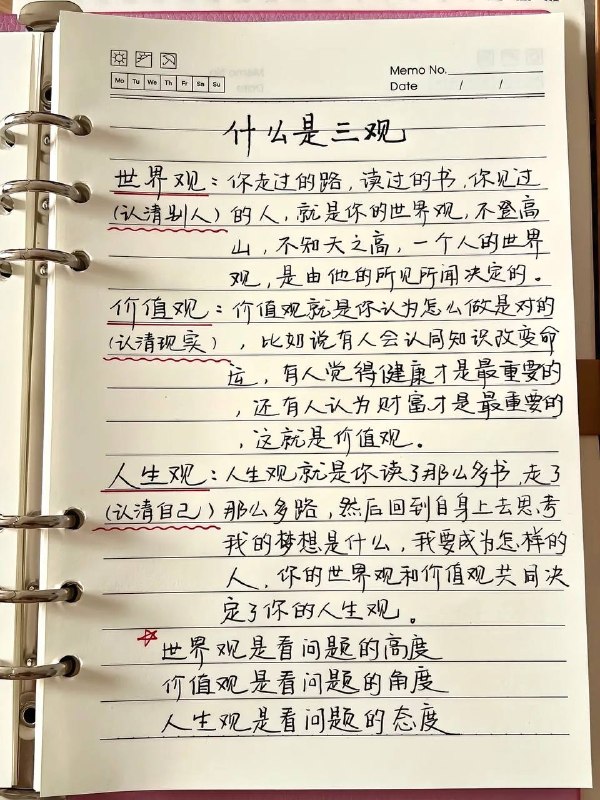 Memo No.
Mo Tu We Th Fr Sa Su
Date / /
什么是三观
世界观：你走过的路，读过的书，你见过
(认清别人)的人，就是你的世界观，不登高
山，不知天之高，一个人的世界
观，是由他的所见所闻决定的。
价值观：价值观就是你认为怎么做是对的
(认清现实)，比如说有人会认同知识改变命
运，有人觉得健康才是最重要的
，还有人认为财富才是最重要的
，这就是价值观。
人生观：人生观就是你读了那么多书，走了
(认清自己)那么多路，然后回到自身上去思考
我的梦想是什么，我要成为怎样的
人，你的世界观和价值观共同决
定了你的人生观。
世界观是看问题的高度
价值观是看问题的角度
人生观是看问题的态度